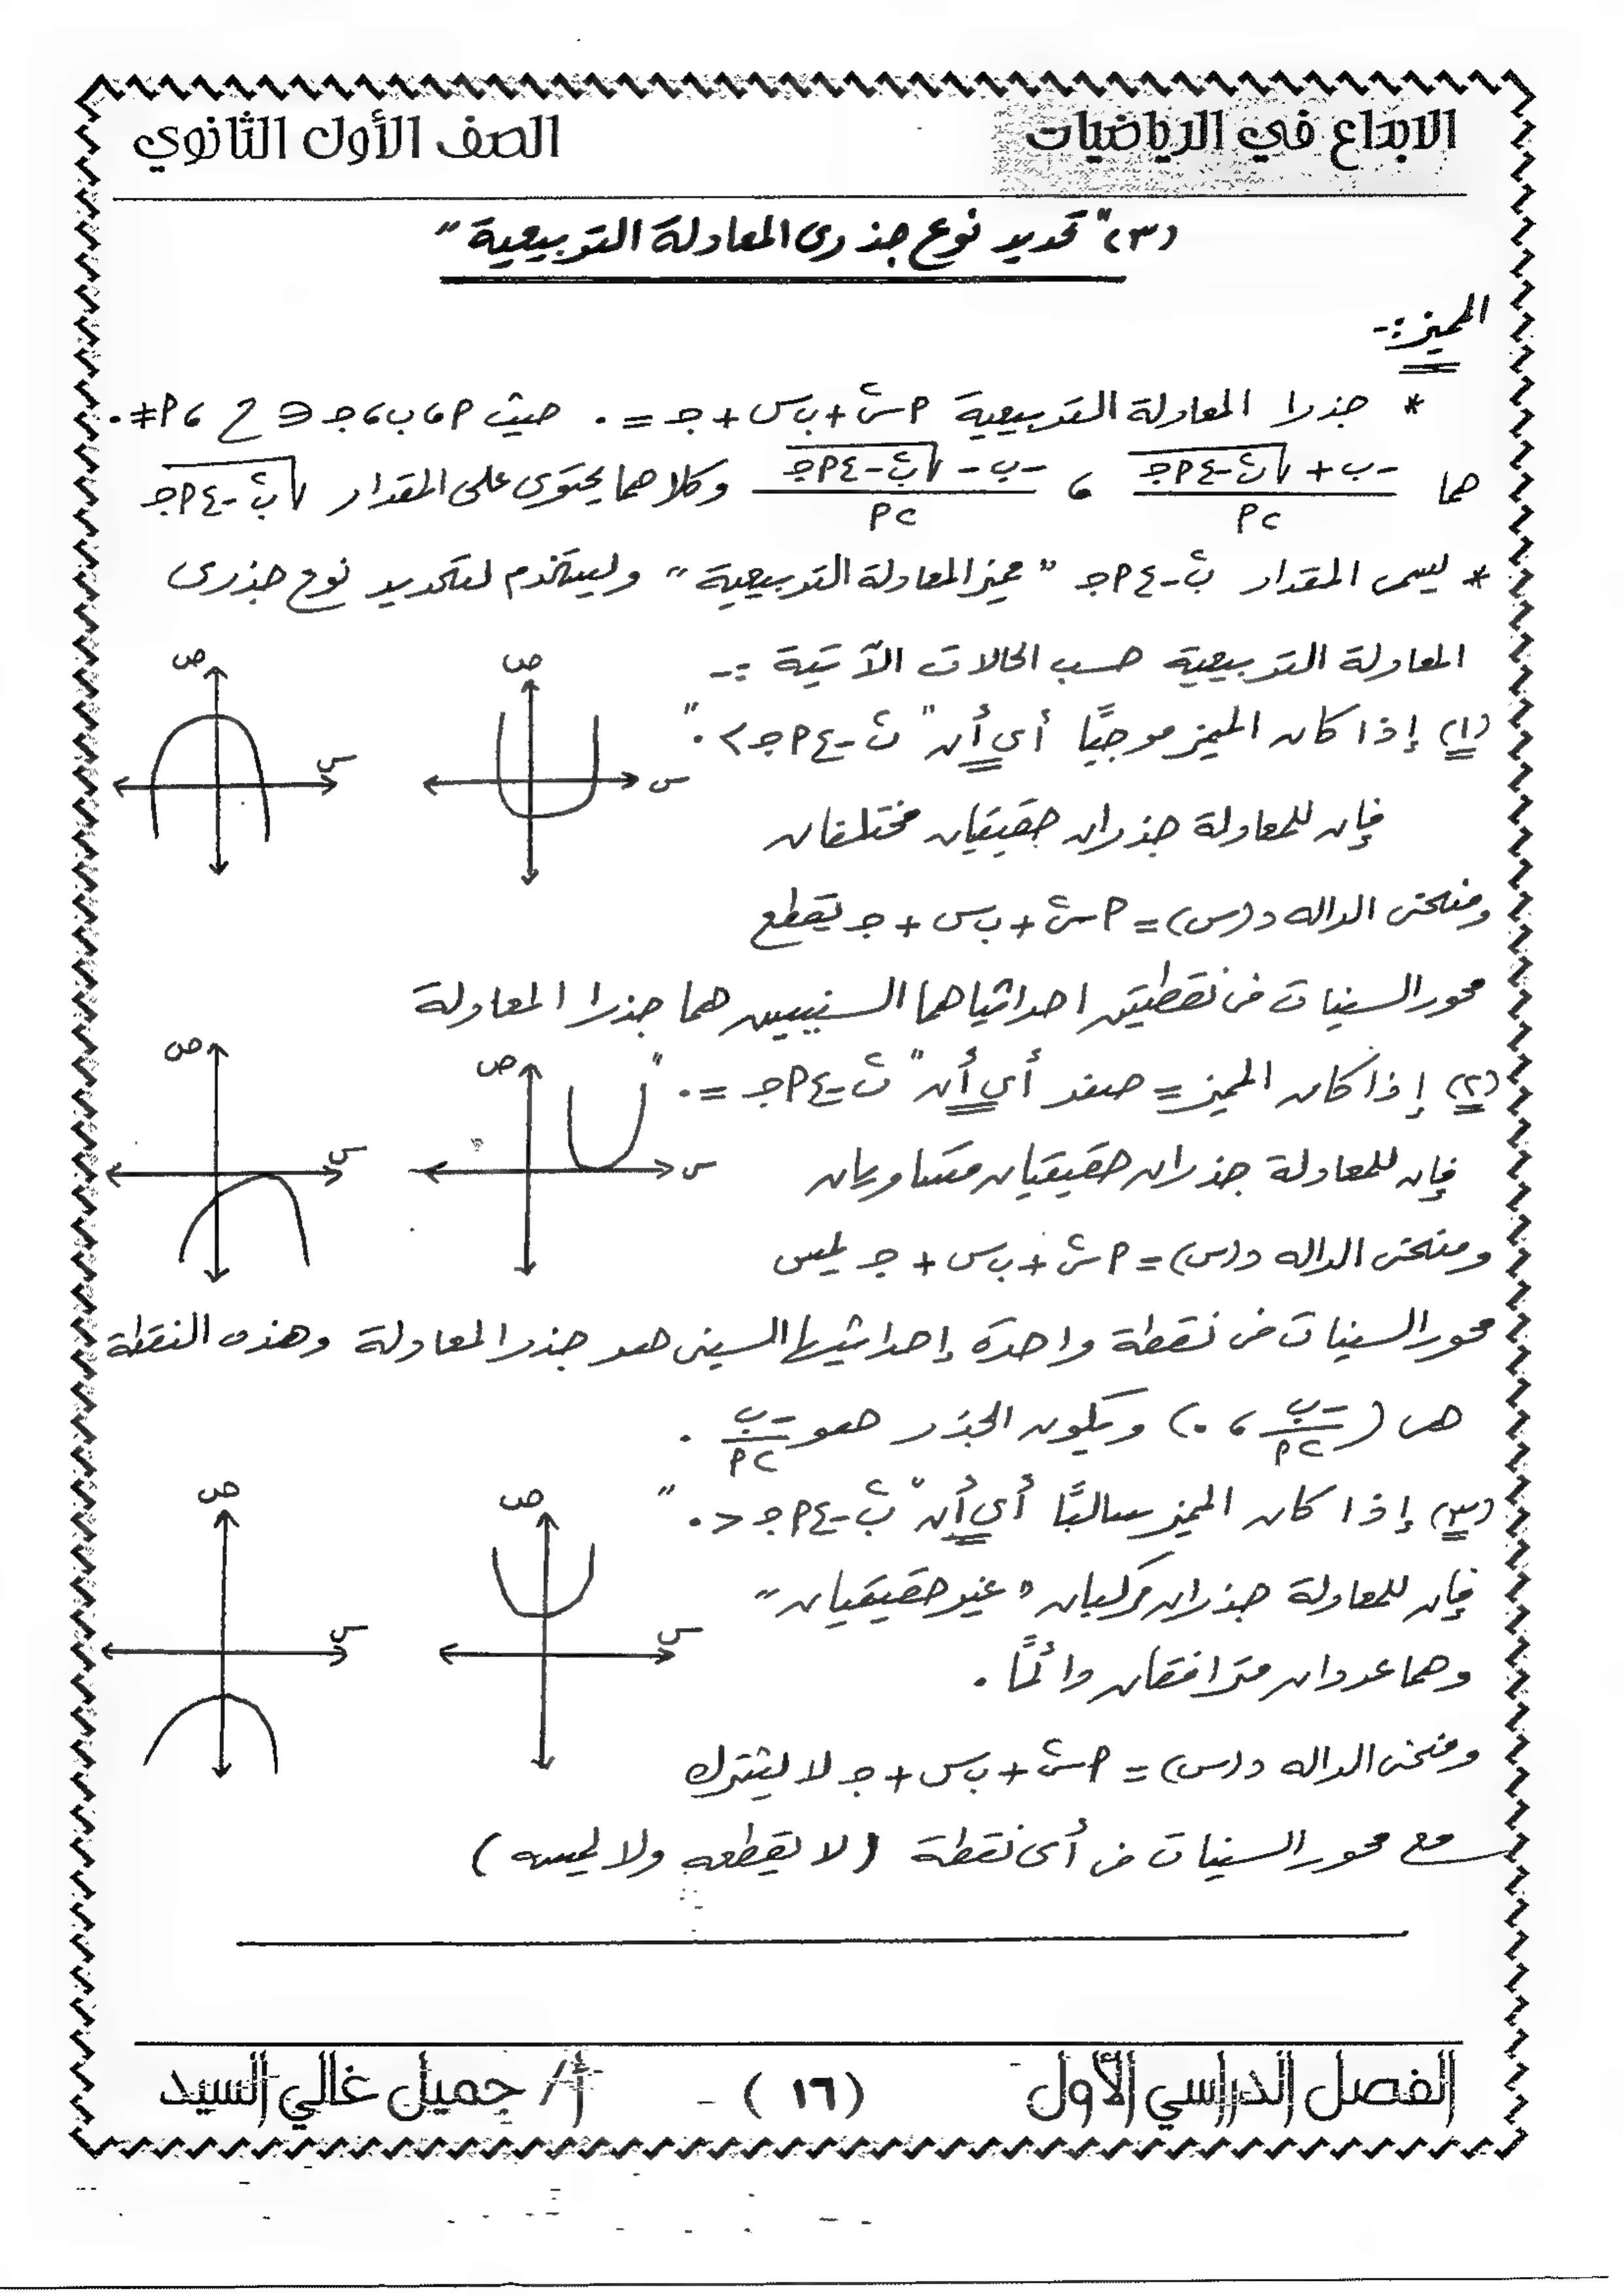 الابداع في الرياضيات
الصف الأول الثانوي
(٣) "تحديد نوع جذرى المعادلة التربيعية"
المميز :-
* جذرا المعادلة التربيعية ‎P‎س² + ب س + جـ = ٠ حيث ‎P‎ ، ب ، جـ ∈ ح ، ‎P‎ ≠ ٠
هما (-ب + √(ب² - ٤‎P‎جـ)) / ٢‎P‎ ، (-ب - √(ب² - ٤‎P‎جـ)) / ٢‎P‎ وكلاهما يحتوى على المقدار √(ب² - ٤‎P‎جـ)
* يسمى المقدار ب² - ٤‎P‎جـ "مميز المعادلة التربيعية" ويستخدم لتحديد نوع جذرى
المعادلة التربيعية حسب الحالات الآتية :-
(١) إذا كان المميز موجبًا أي أن "ب² - ٤‎P‎جـ > ٠"
فإن للمعادلة جذران حقيقيان مختلفان
ومنحنى الداله د(س) = ‎P‎س² + ب س + جـ يقطع
محور السينات فى نقطتين احداثياهما السينيين هما جذرا المعادلة
(٢) إذا كان المميز = صفر أي أن "ب² - ٤‎P‎جـ = ٠"
فإن للمعادلة جذران حقيقيان متساويان
ومنحنى الداله د(س) = ‎P‎س² + ب س + جـ يمس
محور السينات فى نقطة واحدة إحداثيها السينى هو جذر المعادلة وهذه النقطة
هى (-ب/٢‎P‎ ، ٠) ويكون الجذر هو -ب/٢‎P‎ .
(٣) إذا كان المميز سالبًا أي أن "ب² - ٤‎P‎جـ < ٠"
فإن للمعادلة جذران مركبان "غير حقيقيان"
وهما عددان مترافقان دائمًا .
ومنحنى الداله د(س) = ‎P‎س² + ب س + جـ لا يشترك
مع محور السينات فى أى نقطة (لا يقطعه ولا يمسه)
ص
س
ص
س
ص
س
ص
س
ص
س
ص
س
الفصل الدراسي الأول
(١٦)
أ/ جميل غالي السيد